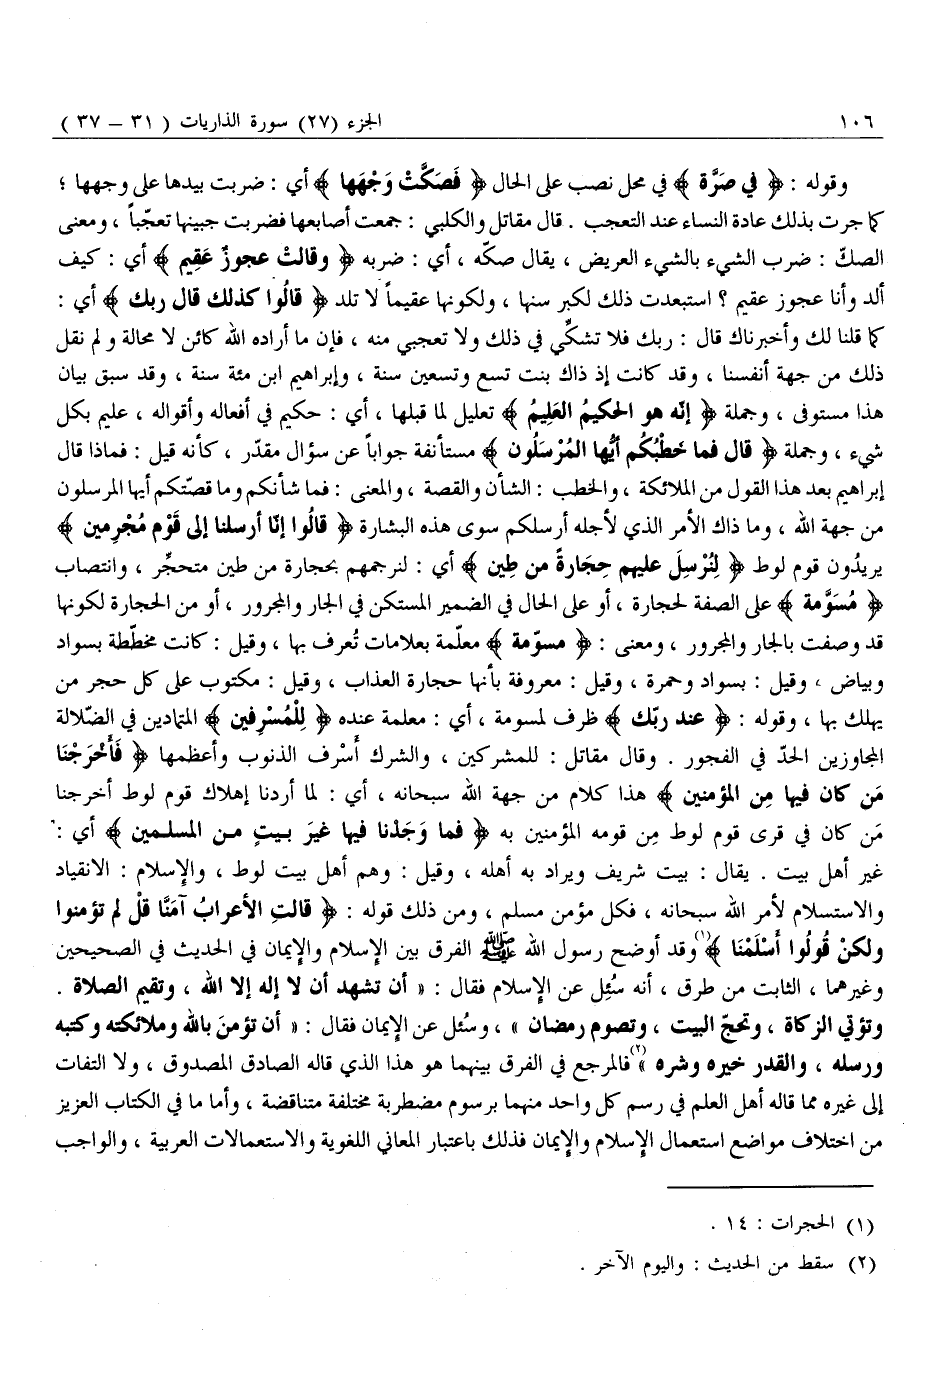 ١٠٦ الجزء (٢٧) سورة الذاريات ( ٣١ – ٣٧ )
وقوله : ﴿ في صَرَّة ﴾ في محل نصب على الحال ﴿ فَصَكَّتْ وَجْهَها ﴾ أي : ضربت بيدها على وجهها ؛
كما جرت بذلك عادة النساء عند التعجب . قال مقاتل والكلبي : جمعت أصابعها فضربت جبينها تعجّباً ، ومعنى
الصكّ : ضرب الشيء بالشيء العريض ، يقال صكّه ، أي : ضربه ﴿ وقالتْ عجوزٌ عَقِيم ﴾ أي : كيف
ألد وأنا عجوز عقيم ؟ استبعدت ذلك لكبر سنها ، ولكونها عقيماً لا تلد ﴿ قالُوا كذلك قال ربك ﴾ أي :
كما قلنا لك وأخبرناك قال : ربك فلا تشكّي في ذلك ولا تعجبي منه ، فإن ما أراده الله كائن لا محالة و لم نقل
ذلك من جهة أنفسنا ، وقد كانت إذ ذاك بنت تسع وتسعين سنة ، وإبراهيم ابن مئة سنة ، وقد سبق بيان
هذا مستوفى ، وجملة ﴿ إنّه هو الحكيمُ العَلِيمُ ﴾ تعليل لما قبلها ، أي : حكيم في أفعاله وأقواله ، عليم بكل
شيء ، وجملة ﴿ قال فما خَطْبُكُم أيُّها المُرْسَلُون ﴾ مستأنفة جواباً عن سؤال مقدّر ، كأنه قيل : فماذا قال
إبراهيم بعد هذا القول من الملائكة ، والخطب : الشأن والقصة ، والمعنى : فما شأنكم وما قصّتكم أيها المرسلون
من جهة الله ، وما ذاك الأمر الذي لأجله أرسلكم سوى هذه البشارة ﴿ قالُوا إنّا أرسلنا إلى قَوْم مُجْرِمين ﴾
يريدُون قوم لوط ﴿ لِنُرْسِلَ عليهم حِجَارةً من طِين ﴾ أي : لنرجمهم بحجارة من طين متحجِّر ، وانتصاب
﴿ مُسَوَّمة ﴾ على الصفة لحجارة ، أو على الحال في الضمير المستكن في الجار والمجرور ، أو من الحجارة لكونها
قد وصفت بالجار والمجرور ، ومعنى : ﴿ مسوّمة ﴾ معلّمة بعلامات تُعرف بها ، وقيل : كانت مخطّطة بسواد
وبياض ، وقيل : بسواد وحمرة ، وقيل : معروفة بأنها حجارة العذاب ، وقيل : مكتوب على كل حجر من
يهلك بها ، وقوله : ﴿ عند ربّك ﴾ ظرف لمسومة ، أي : معلمة عنده ﴿ لِلْمُسْرِفين ﴾ المتمادين في الضّلالة
المجاوزين الحدّ في الفجور . وقال مقاتل : للمشركين ، والشرك أسْرف الذنوب وأعظمها ﴿ فَأَخْرَجْنَا
مَن كان فيها مِن المؤمنين ﴾ هذا كلام من جهة الله سبحانه ، أي : لما أردنا إهلاك قوم لوط أخرجنا
مَن كان في قرى قوم لوط مِن قومه المؤمنين به ﴿ فما وَجَدْنا فيها غيرَ بيتٍ من المسلمين ﴾ أي :
غير أهل بيت . يقال : بيت شريف ويراد به أهله ، وقيل : وهم أهل بيت لوط ، والإسلام : الانقياد
والاستسلام لأمر الله سبحانه ، فكل مؤمن مسلم ، ومن ذلك قوله : ﴿ قالتِ الأعرابُ آمَنَّا قلْ لم تؤمنوا
ولكنْ قُولُوا أَسْلَمْنَا ﴾(١) وقد أوضح رسول الله ﷺ الفرق بين الإسلام والإيمان في الحديث في الصحيحين
وغيرهما ، الثابت من طرق ، أنه سُئِل عن الإسلام فقال : « أن تشهد أن لا إله إلا الله ، وتقيم الصلاة .
وتؤتي الزكاة ، وتحجّ البيت ، وتصوم رمضان » ، وسُئل عن الإيمان فقال : « أن تؤمنَ بالله وملائكته وكتبه
ورسله ، والقدر خيره وشره »(٢) فالمرجع في الفرق بينهما هو هذا الذي قاله الصادق المصدوق ، ولا التفات
إلى غيره مما قاله أهل العلم في رسم كل واحد منهما برسوم مضطربة مختلفة متناقضة ، وأما ما في الكتاب العزيز
من اختلاف مواضع استعمال الإسلام والإيمان فذلك باعتبار المعاني اللغوية والاستعمالات العربية ، والواجب
(١) الحجرات : ١٤ .
(٢) سقط من الحديث : واليوم الآخر .